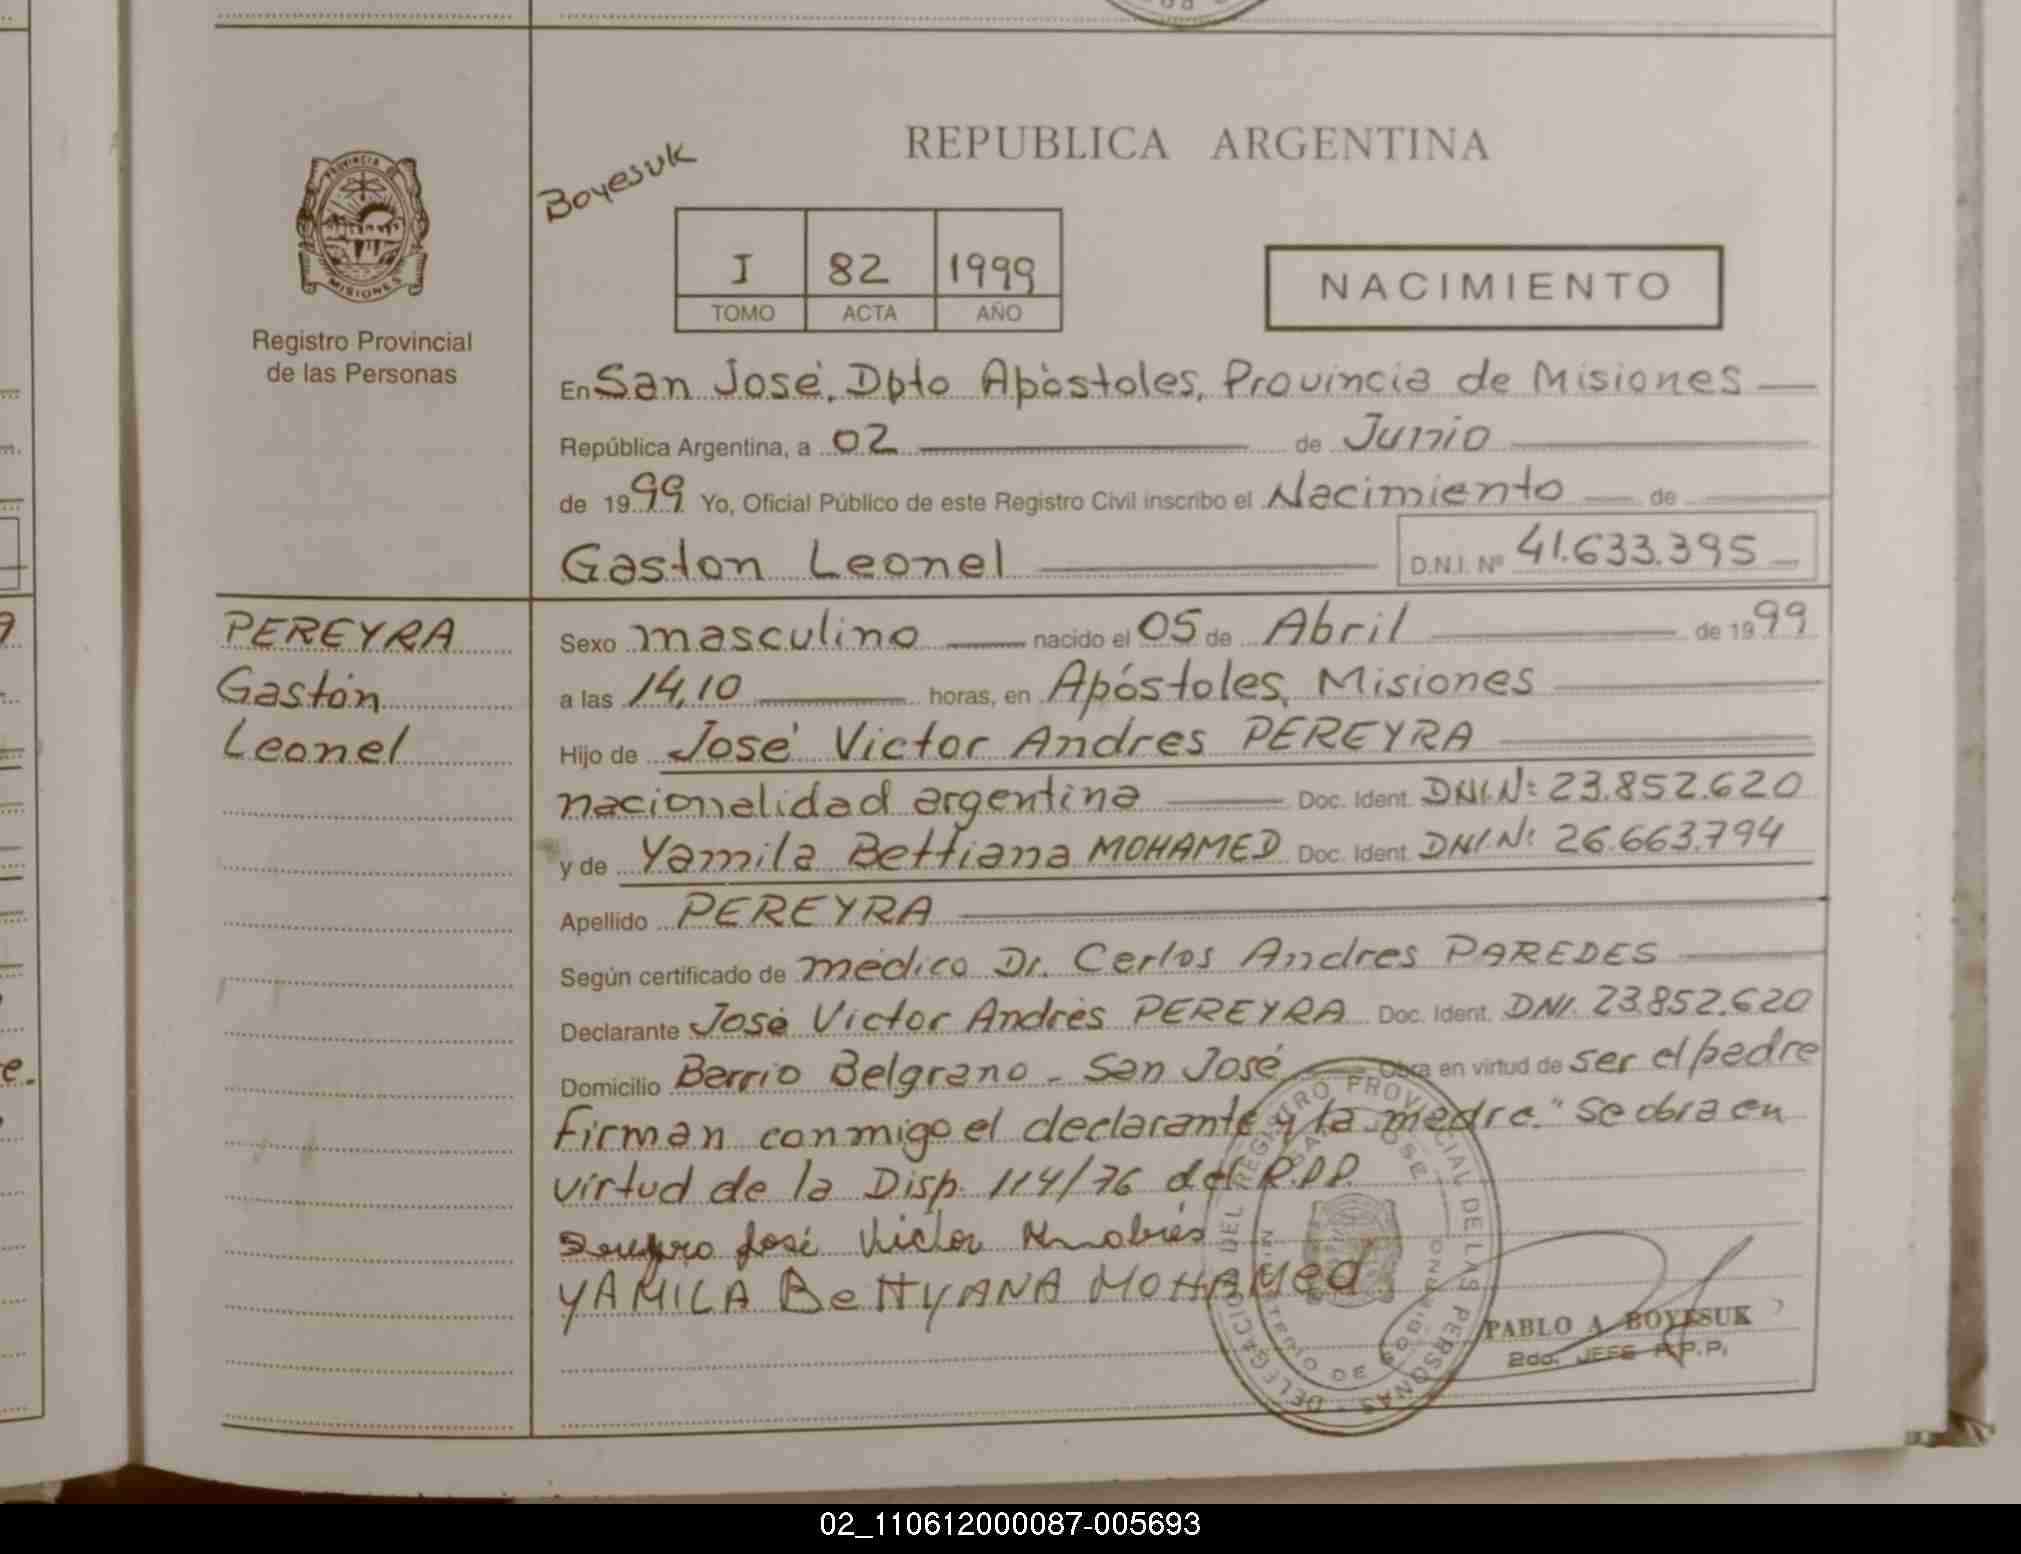 REPUBLICA ARGENTINA
Boyesuk
PROVINCIA
MISIONES
Registro Provincial
de las Personas
I 82 1999
TOMO ACTA AÑO
NACIMIENTO
En San José, Dpto Apóstoles, Provincia de Misiones
República Argentina, a 02 de Junio
de 1999 Yo, Oficial Público de este Registro Civil inscribo el Nacimiento de
Gaston Leonel D.N.I. Nº 41.633.395
PEREYRA
Gastón
Leonel
Sexo masculino nacido el 05 de Abril de 1999
a las 14,10 horas, en Apóstoles, Misiones
Hijo de José Victor Andres PEREYRA
nacionalidad argentina Doc. Ident. DNI.N: 23.852.620
y de Yamila Bettiana MOHAMED Doc. Ident. DNI.N: 26.663.794
Apellido PEREYRA
Según certificado de médico Dr. Carlos Andres PAREDES
Declarante José Victor Andrés PEREYRA Doc. Ident. DNI. 23.852.620
Domicilio Barrio Belgrano - San José Obra en virtud de ser el padre
Firman conmigo el declarante y la madre." Se obra en
virtud de la Disp. 114/76 del R.P.P.
José Victor
YAMILA BettYANA MOHAMed
DELEGACION DEL REGISTRO PROVINCIAL DE LAS PERSONAS
SAN JOSE
MINISTERIO DE GOBIERNO
PABLO A. BOYESUK
2do. JEFE R.P.P.
02_110612000087-005693